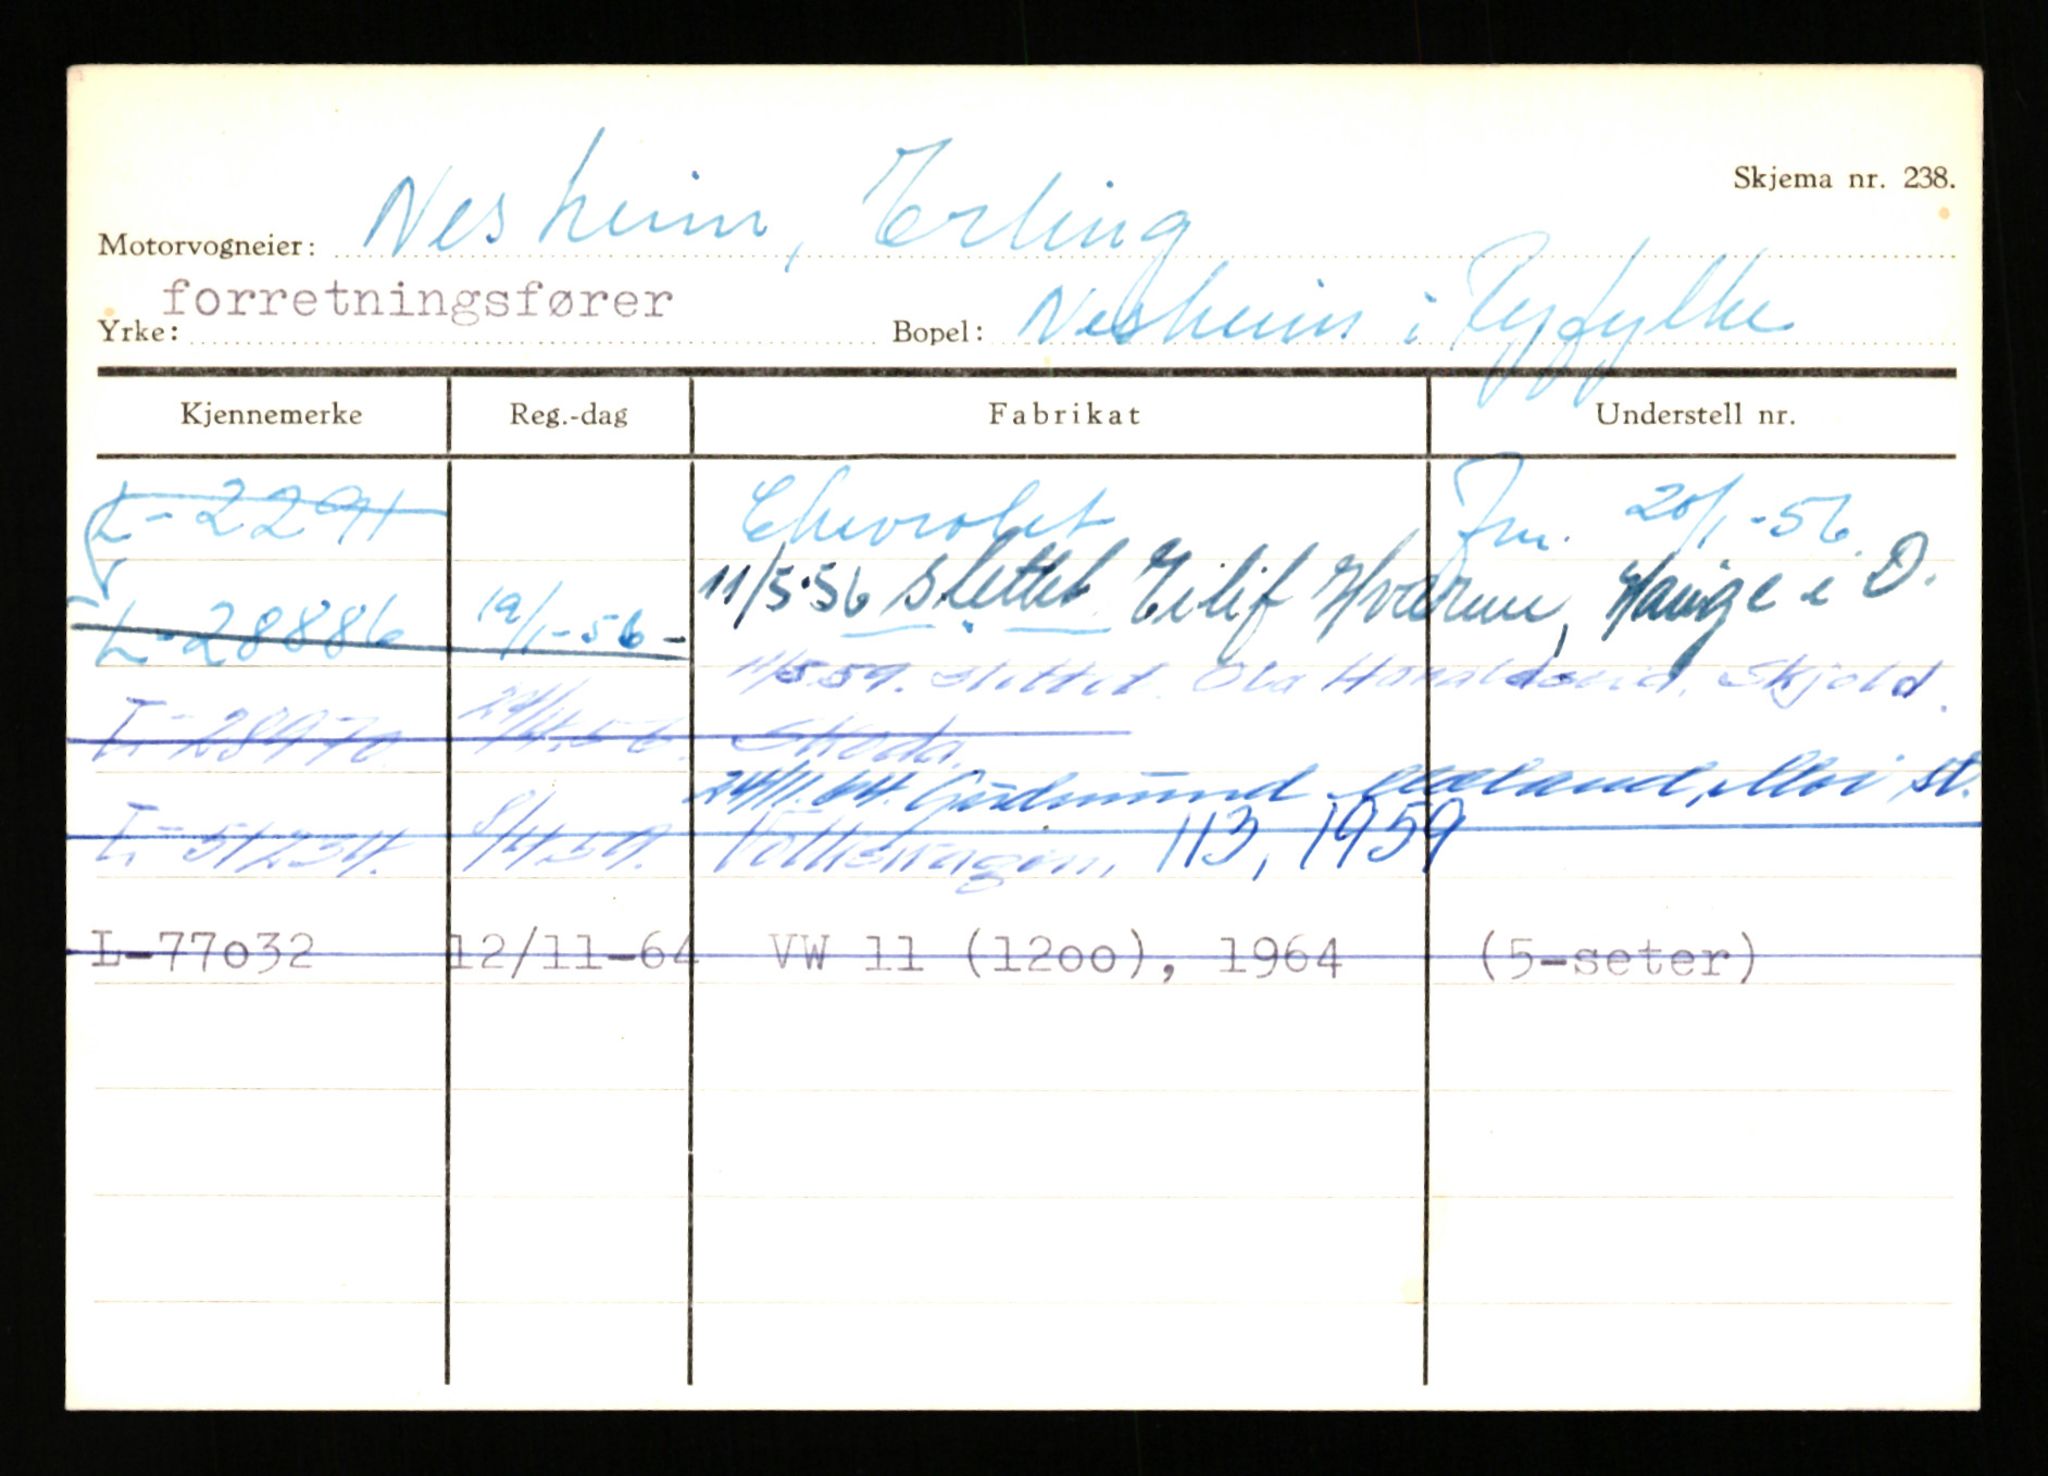 Skjema nr. 238.
Motorvogneier: Nesheim, Erling
Yrke: forretningsfører Bopel: Nesheim i Ryfylke
Kjennemerke Reg.-dag Fabrikat Understell nr.
L-2291 Chevrolet Fm. 20/1-56.
11/5-56 slettet Eilif Kværne, Hauge i D.
L-28886 19/1-56-
11/5.59. slettet. Ola Haraldseid, Skjold.
L-28970. 24/4.56. Skoda.
24/11.64. Gudmund Moi st.
L-51234. 8/4.59. Volkswagen, 113, 1959
L-77032 12/11-64 VW 11 (1200), 1964 (5-seter)